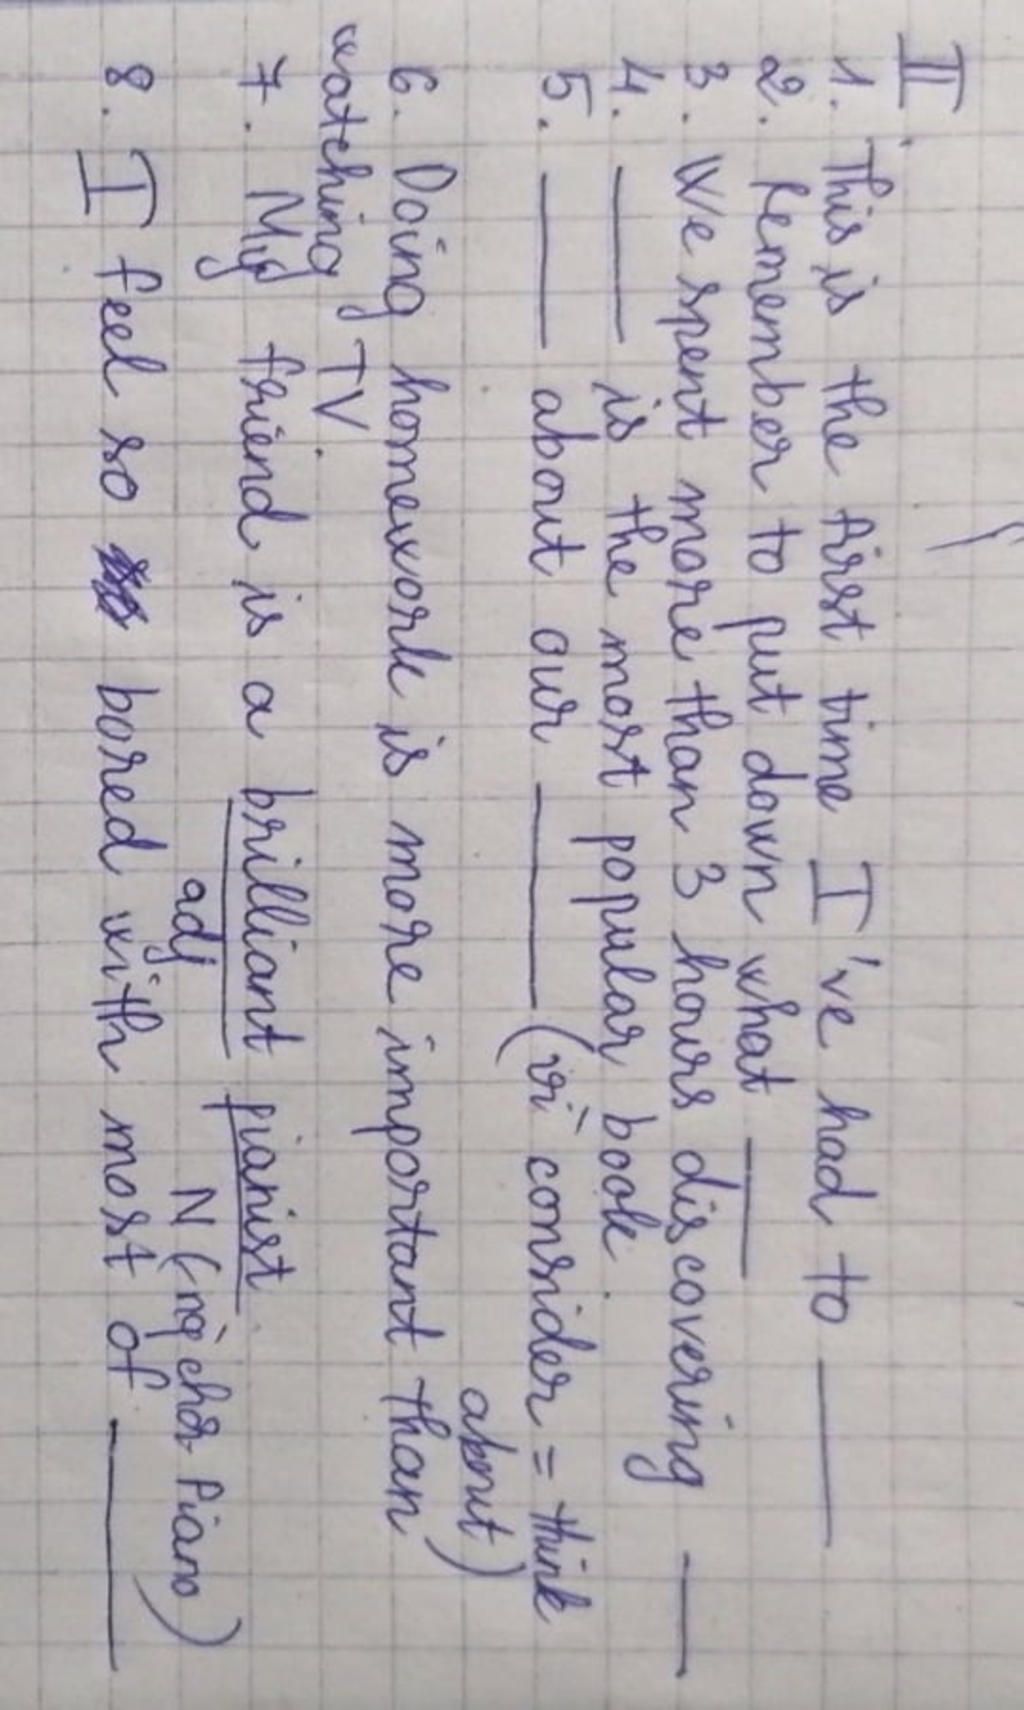 II.
1. This is the first time I've had to ___
2. Remember to put down what ___
3. We spent more than 3 hours discovering ___
4. ___ is the most popular book.
5. ___ about our ___ (vì consider = think
about)
6. Doing homework is more important than
watching TV.
7. My friend is a brilliant pianist.
adj N (ng` chơi Piano)
8. I feel so bored with most of ___